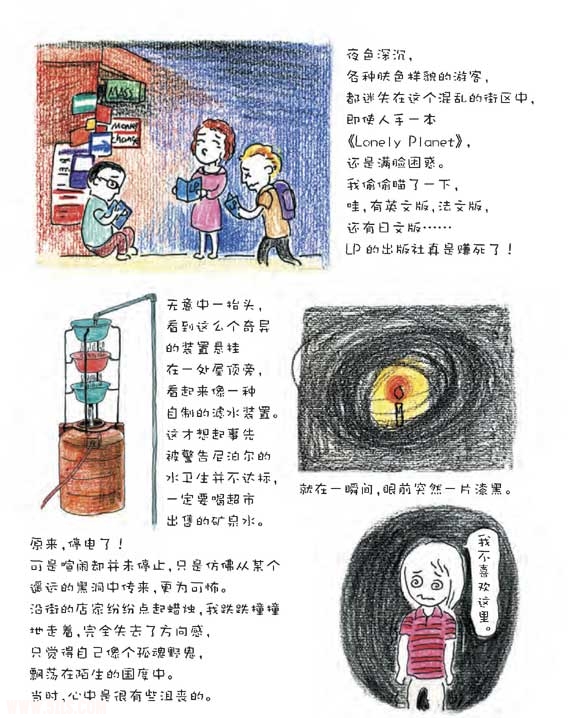 夜色深沉，
各种肤色样貌的游客，
都迷失在这个混乱的街区中，
即使人手一本
《Lonely Planet》，
还是满脸困惑。
我偷偷瞄了一下，
哇，有英文版，法文版，
还有日文版……
LP的出版社真是赚死了！
MASS
Money
change
无意中一抬头，
看到这么个奇异
的装置悬挂
在一处屋顶旁，
看起来像一种
自制的滤水装置。
这才想起事先
被警告尼泊尔的
水卫生并不达标，
一定要喝超市
出售的矿泉水。
就在一瞬间，眼前突然一片漆黑。
原来，停电了！
可是喧闹却并未停止，只是仿佛从某个
遥远的黑洞中传来，更为可怖。
沿街的店家纷纷点起蜡烛，我跌跌撞撞
地走着，完全失去了方向感，
只觉得自己像个孤魂野鬼，
飘荡在陌生的国度中。
当时，心中是很有些沮丧的。
我不喜欢这里。